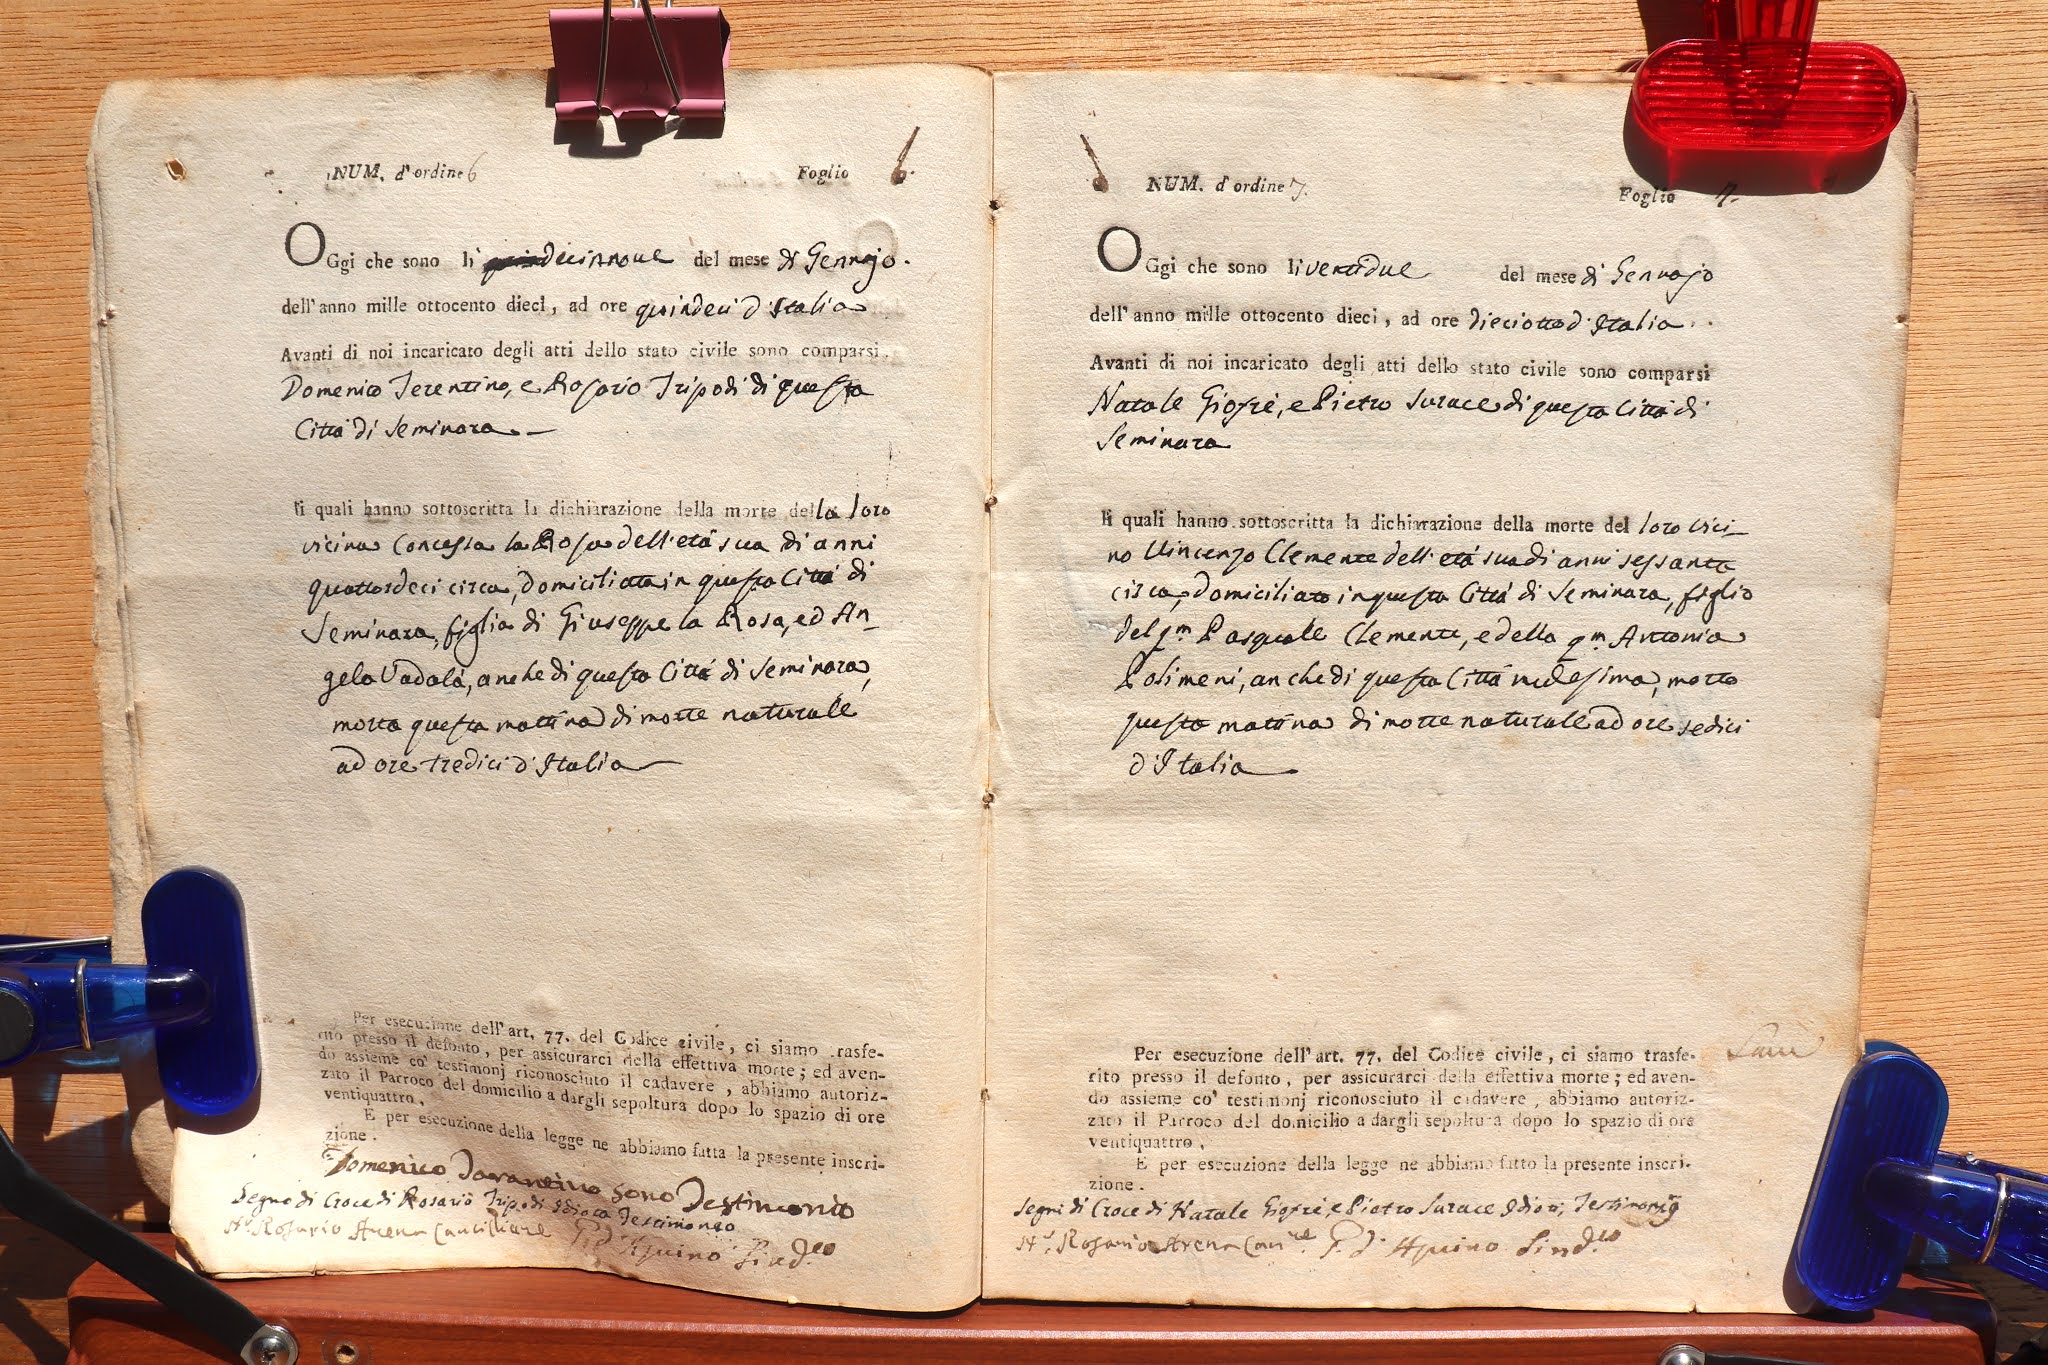 NUM. d'ordine 6
Foglio 6.
OGgi che sono li decinnove del mese di Gennajo.
dell'anno mille ottocento dieci, ad ore quindeci d'Italia
Avanti di noi incaricato degli atti dello stato civile sono comparsi
Domenico Terentino, e Rosario Tripodi di questa
Città di Seminara
li quali hanno sottoscritta la dichiarazione della morte della loro
vicina Concessa la Rosa dell'età sua di anni
quattordeci circa, domiciliata in questa Città di
Seminara, figlia di Giuseppe la Rosa, ed An_
gela Vadalà, anche di questa Città di Seminara,
morta questa mattina di morte naturale
ad ore tredici d'Italia
Per esecuzione dell'art. 77. del Codice civile, ci siamo trasfe-
rito presso il defonto, per assicurarci della effettiva morte; ed aven-
do assieme co' testimonj riconosciuto il cadavere, abbiamo autoriz-
zato il Parroco del domicilio a dargli sepoltura dopo lo spazio di ore
ventiquattro.
E per esecuzione della legge ne abbiamo fatta la presente inscri-
zione.
Domenico Tarantino sono Testimonio
Segno di Croce di Rosario Tripodi Idiota Testimoneo
Nr. Rosario Arena Cancilliare P. d'Aquino Sind.co
NUM. d'ordine 7.
Foglio 7.
OGgi che sono li ventidue del mese di Gennajo
dell'anno mille ottocento dieci, ad ore dieciotto d'Italia.
Avanti di noi incaricato degli atti dello stato civile sono comparsi
Natale Giofrè, e Pietro Surace di questa Città di
Seminara
li quali hanno sottoscritta la dichiarazione della morte del loro vici_
no Vincenzo Clemente dell'età sua di anni sessanta
circa, domiciliato in questa Città di Seminara, figlio
del qm Pasquale Clemente, e della qm Antonia
Polimeni, anche di questa Città medesima, morto
questa mattina di morte naturale ad ore sedici
d'Italia
Per esecuzione dell'art. 77. del Codice civile, ci siamo trasfe-
rito presso il defonto, per assicurarci della effettiva morte; ed aven-
do assieme co' testimonj riconosciuto il cadavere, abbiamo autoriz-
zato il Parroco del domicilio a dargli sepoltura dopo lo spazio di ore
ventiquattro.
E per esecuzione della legge ne abbiamo fatto la presente inscri-
zione.
Segni di Croce di Natale Giofrè, e Pietro Surace Idioti, Testimonij
Nr. Rosario Arena Can.re P. d'Aquino Sind.co